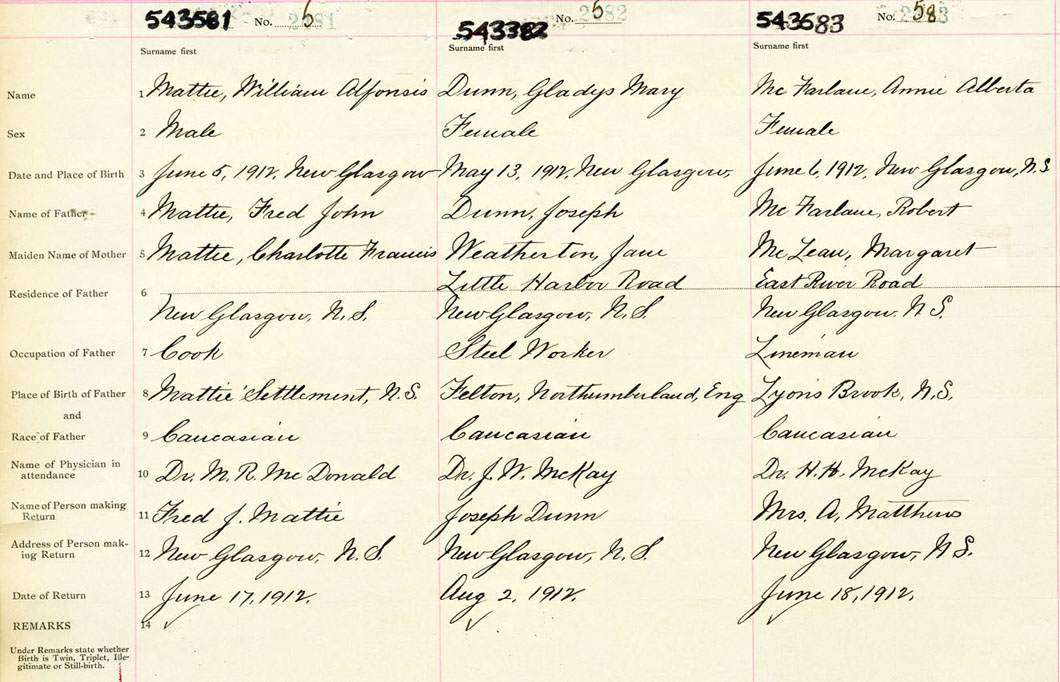 543581 No. 543382 No. 543583 No.
Surname first Surname first Surname first
Name 1 Mattie, William Alfonsis Dunn, Gladys Mary Mc Farlane, Annie Alberta
Sex 2 Male Female Female
Date and Place of Birth 3 June 5, 1912, New Glasgow May 13, 1912, New Glasgow, June 6, 1912, New Glasgow, N.S
Name of Father 4 Mattie, Fred John Dunn, Joseph Mc Farlane, Robert
Maiden Name of Mother 5 Mattie, Charlotte Francis Weatherton, Jane Mc Lean, Margaret
Little Harbor Road East River Road
Residence of Father 6
New Glasgow, N.S. New Glasgow, N.S. New Glasgow, N.S.
Occupation of Father 7 Cook Steel Worker Lineman
Place of Birth of Father 8 Mattie Settlement, N.S. Felton, Northumberland, Eng Lyons Brook, N.S.
and
Race of Father 9 Caucasian Caucasian Caucasian
Name of Physician in
attendance 10 Dr. M. R. Mc Donald Dr. J. W. McKay Dr. H. H. McKay
Name of Person making
Return 11 Fred J. Mattie Joseph Dunn Mrs. A, Matthews
Address of Person mak-
ing Return 12 New Glasgow, N.S New Glasgow, N.S New Glasgow, N.S.
Date of Return 13 June 17, 1912. Aug 2, 1912. June 18, 1912.
REMARKS 14
Under Remarks state whether
Birth is Twin, Triplet, Ille-
gitimate or Still-birth.